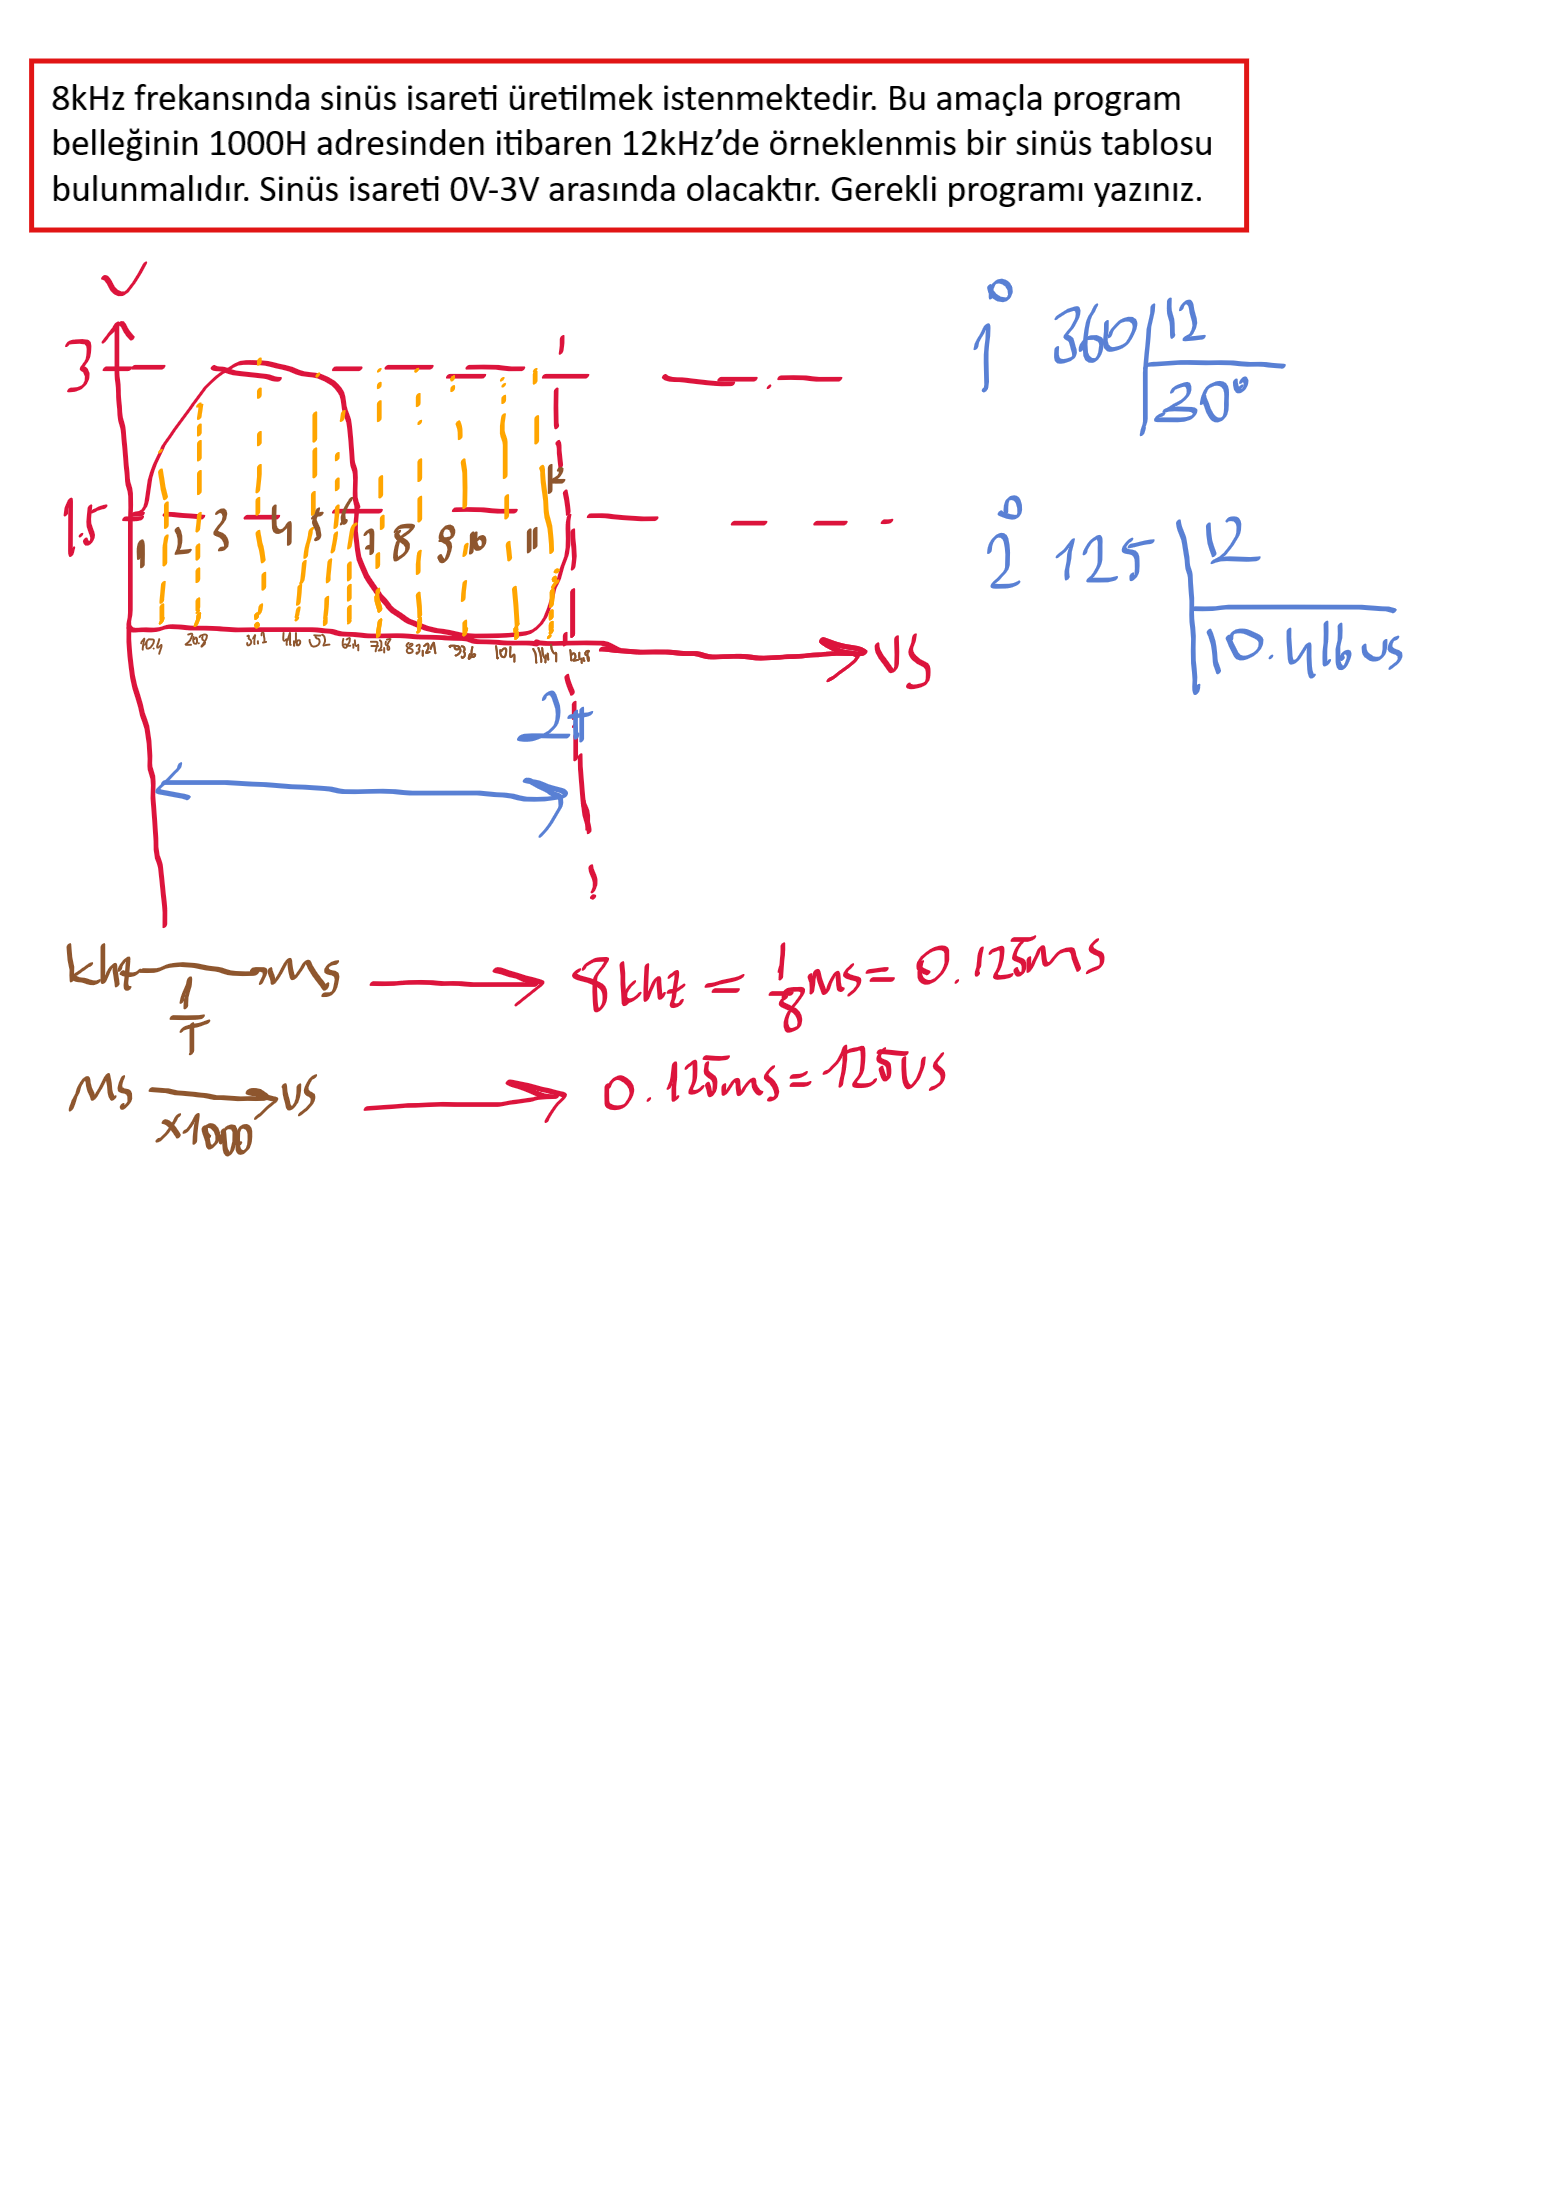 8kHz frekansında sinüs isareti üretilmek istenmektedir. Bu amaçla program
belleğinin 1000H adresinden itibaren 12kHz’de örneklenmis bir sinüs tablosu
bulunmalıdır. Sinüs isareti 0V-3V arasında olacaktır. Gerekli programı yazınız.
V
3
1.5
1 2 3 4 5 6 7 8 9 10 11 12
10.4 20.8 31.2 41.6 52 62.4 72.8 83.2 93.6 104 114.4 124.8
us
2π
1° 360 | 12
30°
2° 125 | 12
10.416 us
khz ms 8khz = 1/8 ms = 0.125ms
1/T
Ms us 0.125ms = 125us
x1000